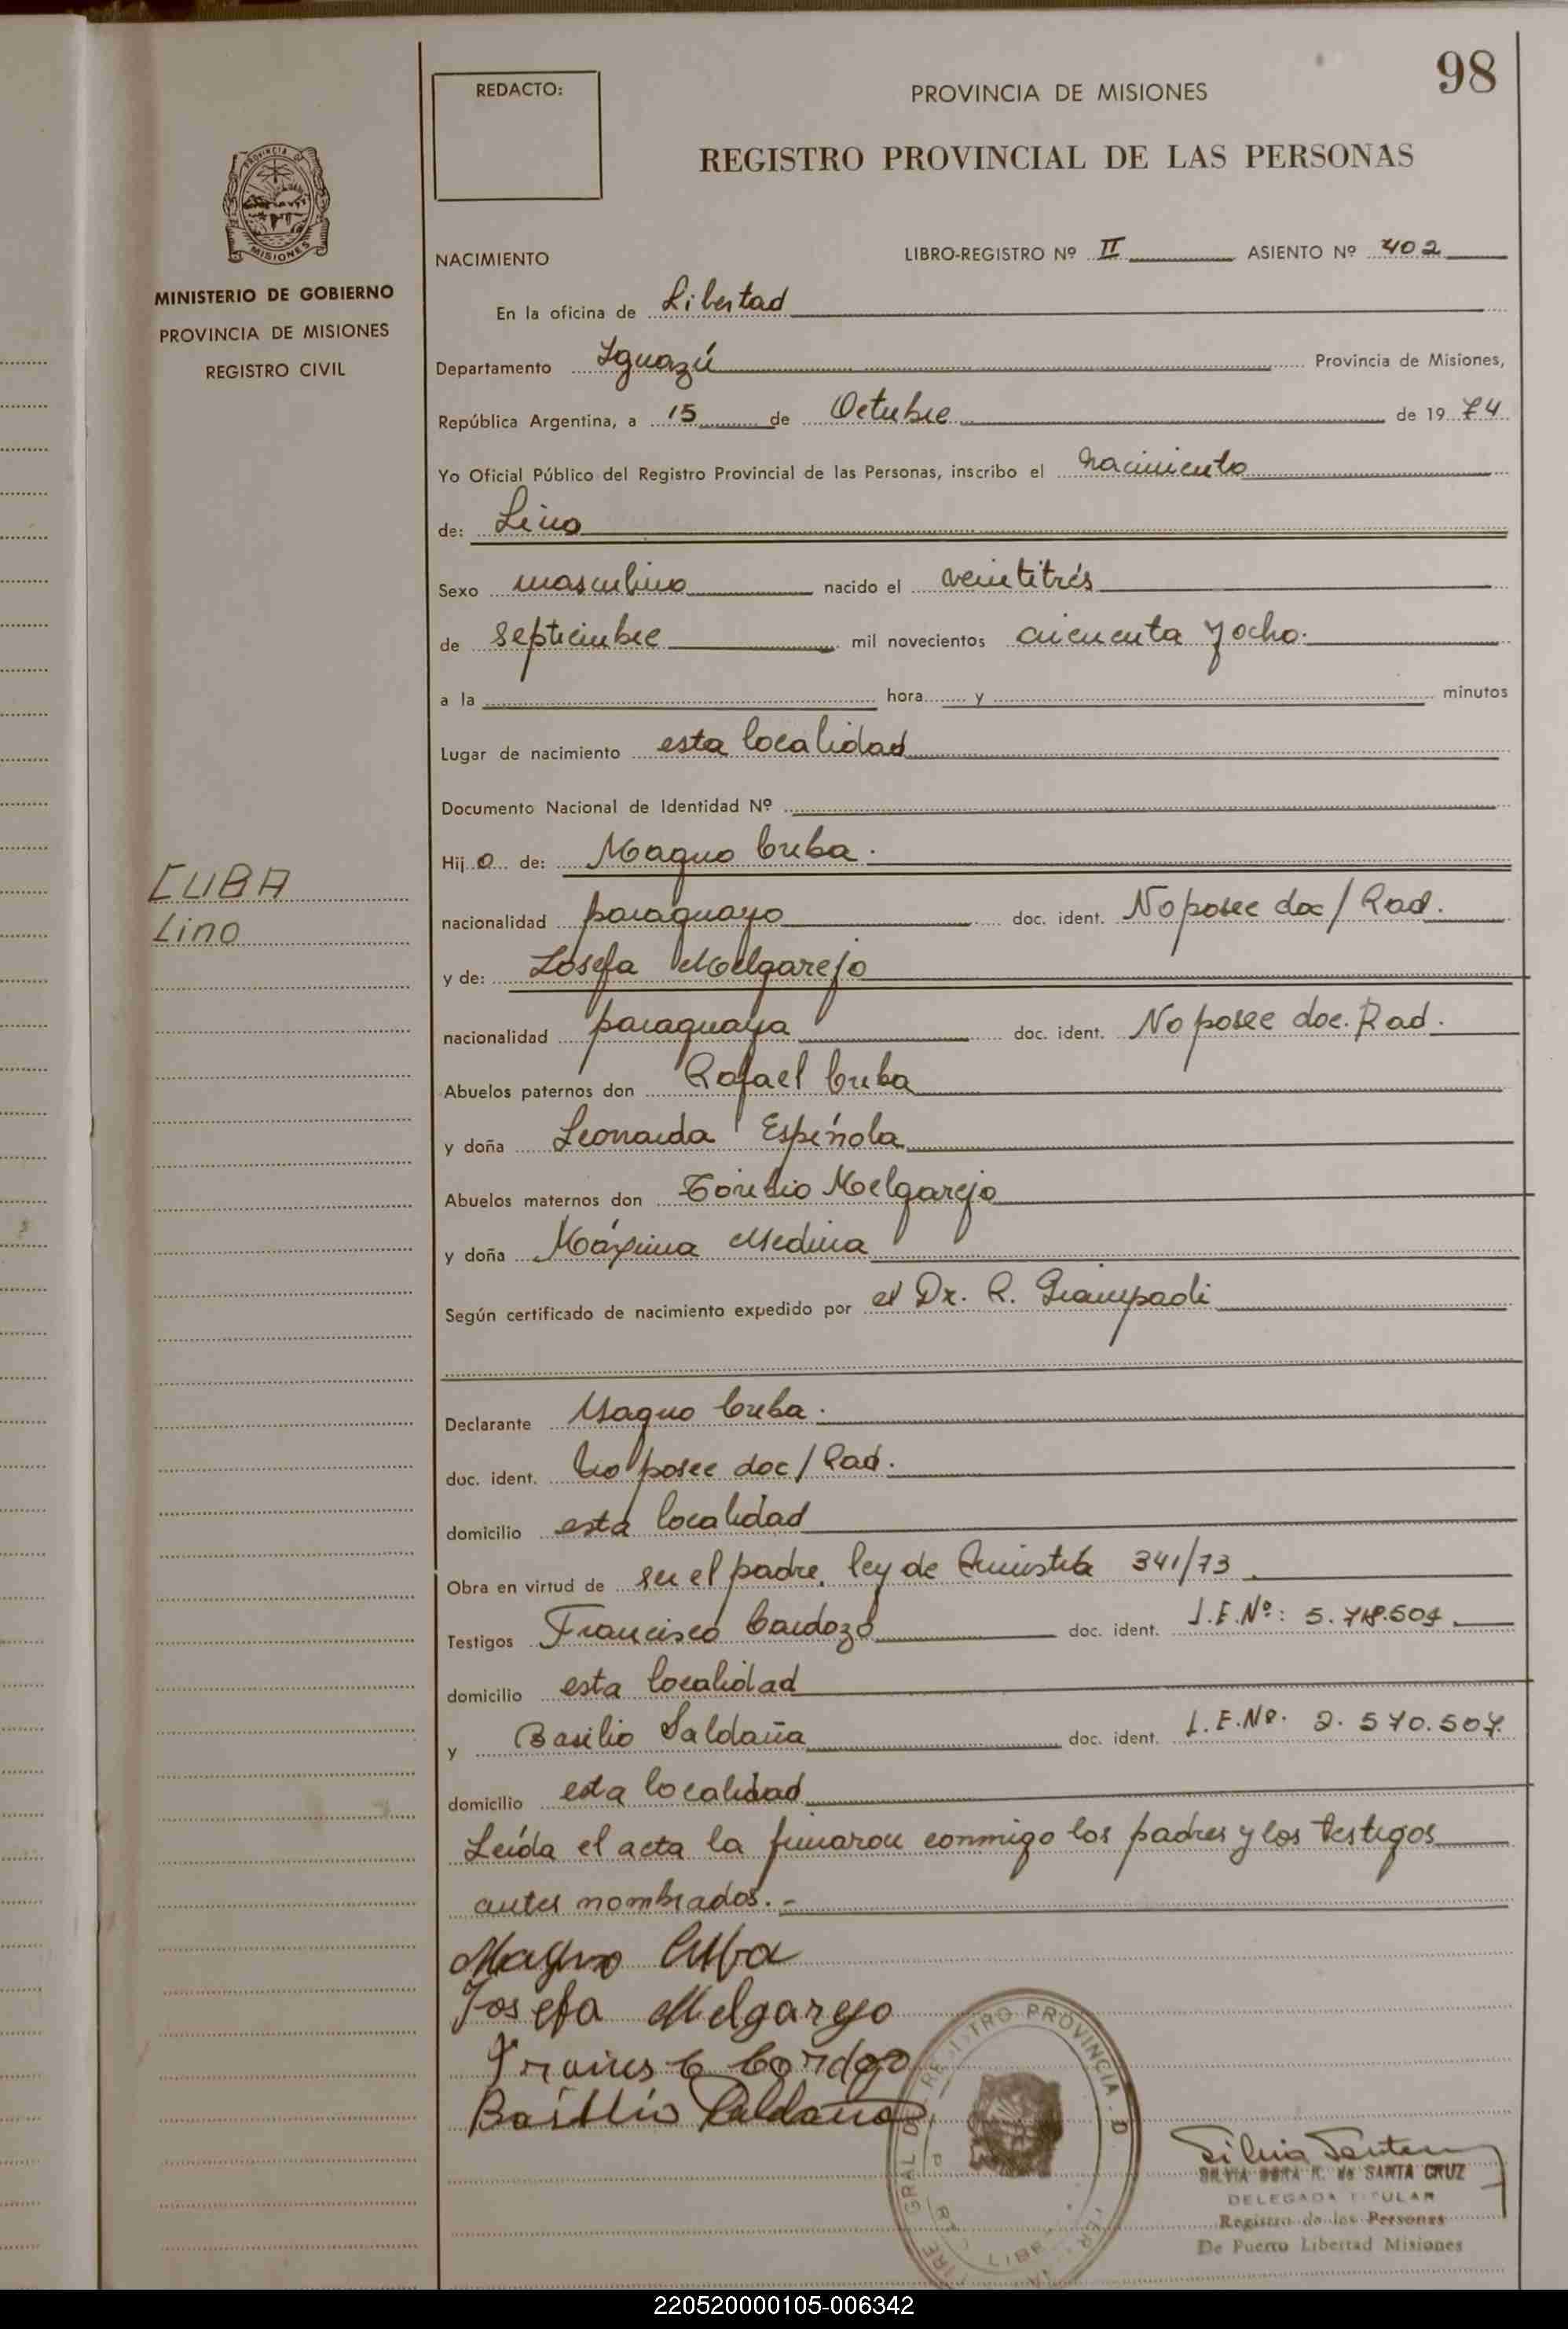 98
REDACTO:
PROVINCIA DE MISIONES
REGISTRO PROVINCIAL DE LAS PERSONAS
PROVINCIA DE
MISIONES
MINISTERIO DE GOBIERNO
PROVINCIA DE MISIONES
REGISTRO CIVIL
NACIMIENTO LIBRO-REGISTRO Nº II ASIENTO Nº 402
En la oficina de Libertad
Departamento Iguazú Provincia de Misiones,
República Argentina, a 15 de Octubre de 19 74
Yo Oficial Público del Registro Provincial de las Personas, inscribo el nacimiento
de: Lino
Sexo masculino nacido el veintitrés
de septiembre mil novecientos cincuenta y ocho.
a la hora y minutos
Lugar de nacimiento esta localidad
Documento Nacional de Identidad Nº
Hij o de: Magno Cuba.
CUBA
Lino
nacionalidad paraguayo doc. ident. No posee doc/Rad.
y de: Josefa Melgarejo
nacionalidad paraguaya doc. ident. No posee doc. Rad.
Abuelos paternos don Rafael Cuba
y doña Leonarda Espínola
Abuelos maternos don Toribio Melgarejo
y doña Máxima Medina
Según certificado de nacimiento expedido por el Dr. R.
Declarante Magno Cuba.
doc. ident. No posee doc/Rad.
domicilio esta localidad
Obra en virtud de ser el padre, ley de Amnistía 341/73.
Testigos Francisco Cardozo doc. ident. L.E.Nº:
domicilio esta localidad
y Basilio Saldaña doc. ident. L.E.Nº. 2.570.507.
domicilio esta localidad
Leída el acta la firmaron conmigo los padres y los testigos
antes nombrados.-
Magno Cuba
Josefa Melgarejo
Basilio Saldaña
REGISTRO PROVINCIAL D
SANTA CRUZ
DELEGADA TITULAR
Registro de las Personas
De Puerto Libertad Misiones
220520000105-006342